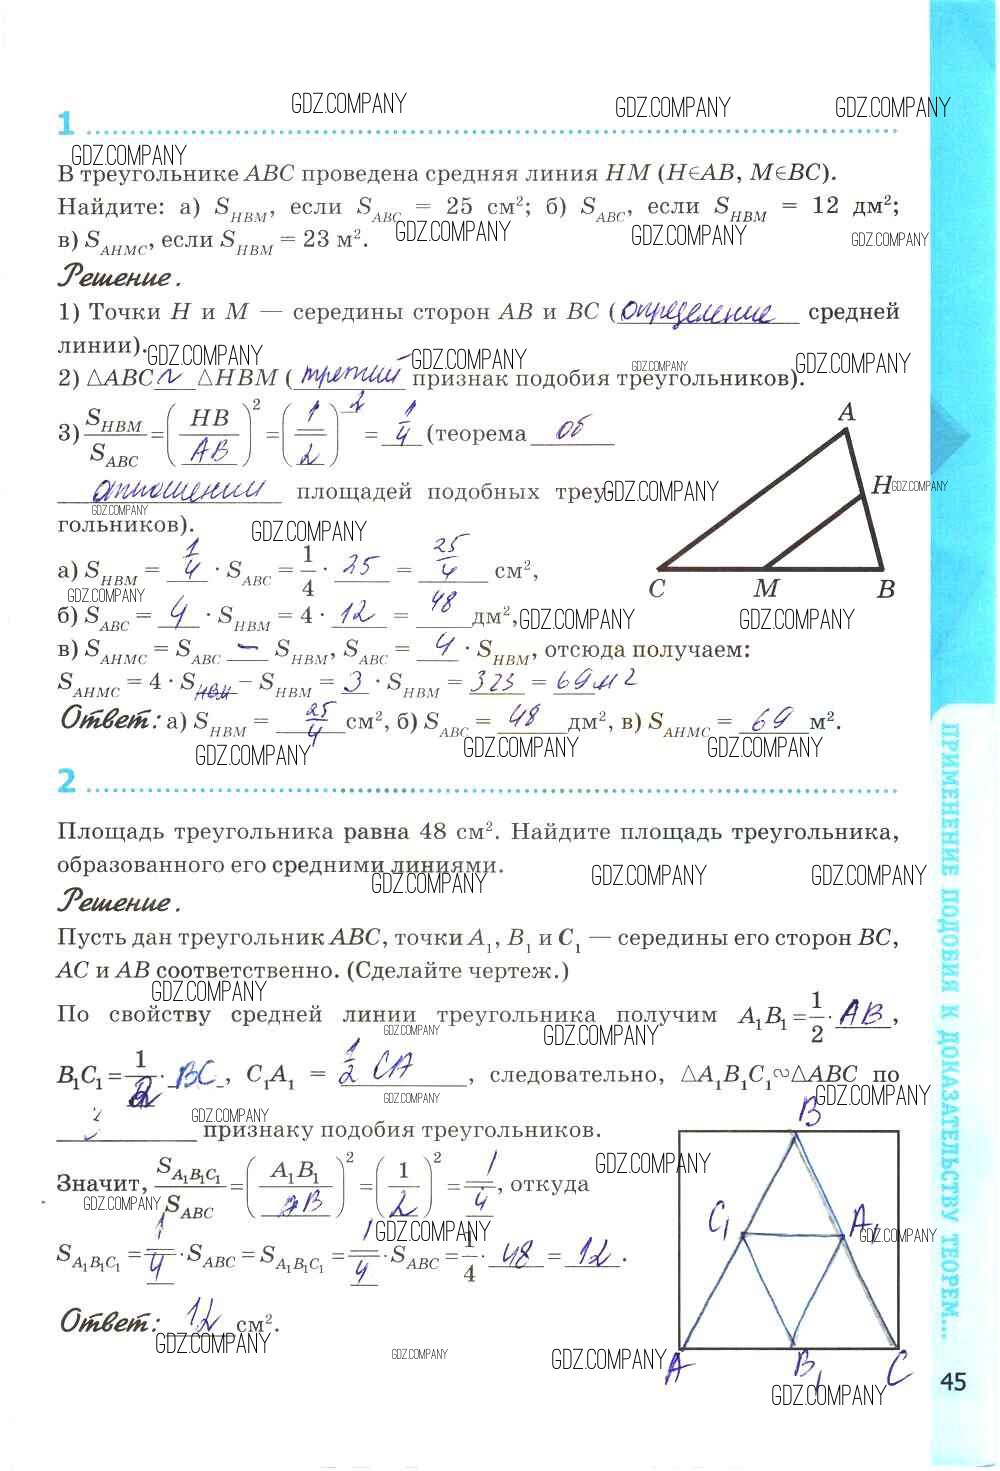 GDZ.COMPANY GDZ.COMPANY GDZ.COMPANY
1
GDZ.COMPANY
В треугольнике ABC проведена средняя линия HM (H∈AB, M∈BC).
Найдите: а) S_HBM, если S_ABC = 25 см²; б) S_ABC, если S_HBM = 12 дм²;
в) S_AHMC, если S_HBM = 23 м². GDZ.COMPANY GDZ.COMPANY GDZ.COMPANY
Решение.
1) Точки H и M — середины сторон AB и BC (определение средней
линии). GDZ.COMPANY GDZ.COMPANY GDZ.COMPANY GDZ.COMPANY
2) △ABC ~ △HBM (третий признак подобия треугольников).
3) S_HBM/S_ABC = (HB/AB)² = (1/2)² = 1/4 (теорема об
отношении площадей подобных треу-
GDZ.COMPANY GDZ.COMPANY GDZ.COMPANY
гольников). GDZ.COMPANY
A H C M B
а) S_HBM = 1/4 · S_ABC = 1/4 · 25 = 25/4 см²,
GDZ.COMPANY
б) S_ABC = 4 · S_HBM = 4 · 12 = 48 дм², GDZ.COMPANY GDZ.COMPANY
в) S_AHMC = S_ABC – S_HBM, S_ABC = 4 · S_HBM, отсюда получаем:
S_AHMC = 4 · S_HBM – S_HBM = 3 · S_HBM = 323 = 69 м2
Ответ: а) S_HBM = 25/4 см², б) S_ABC = 48 дм², в) S_AHMC = 69 м².
GDZ.COMPANY GDZ.COMPANY GDZ.COMPANY
2
Площадь треугольника равна 48 см². Найдите площадь треугольника,
образованного его средними линиями.
GDZ.COMPANY GDZ.COMPANY GDZ.COMPANY
Решение.
Пусть дан треугольник ABC, точки A₁, B₁ и C₁ — середины его сторон BC,
AC и AB соответственно. (Сделайте чертеж.)
GDZ.COMPANY
По свойству средней линии треугольника получим A₁B₁ = 1/2 · AB,
GDZ.COMPANY GDZ.COMPANY
B₁C₁ = 1/2 · BC, C₁A₁ = 1/2 CA, следовательно, △A₁B₁C₁ ∽ △ABC по
GDZ.COMPANY GDZ.COMPANY GDZ.COMPANY
признаку подобия треугольников.
Значит, S_A₁B₁C₁/S_ABC = (A₁B₁/AB)² = (1/2)² = 1/4, откуда
GDZ.COMPANY GDZ.COMPANY GDZ.COMPANY GDZ.COMPANY
S_A₁B₁C₁ = 1/4 · S_ABC = S_A₁B₁C₁ = 1/4 · S_ABC = 1/4 · 48 = 12.
Ответ: 12 см².
B C₁ A₁ A B₁ C
GDZ.COMPANY GDZ.COMPANY GDZ.COMPANY
GDZ.COMPANY
ПРИМЕНЕНИЕ ПОДОБИЯ К ДОКАЗАТЕЛЬСТВУ ТЕОРЕМ...
45